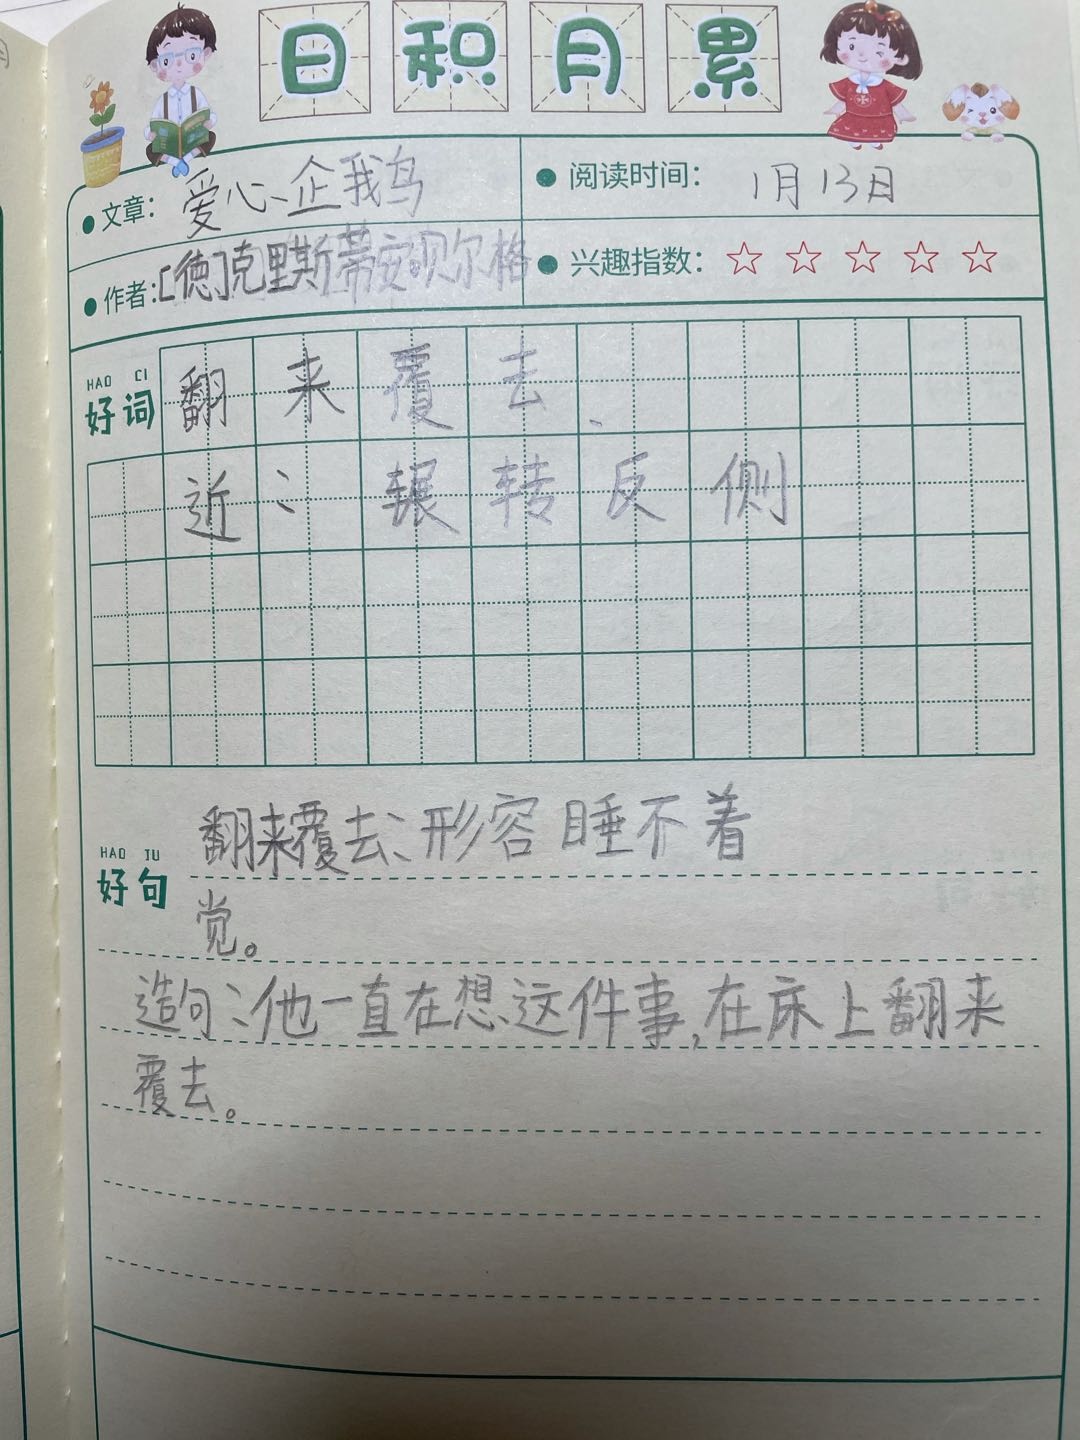 日积月累
文章：爱心企我鸟
阅读时间：1月13日
作者：[德]克里斯蒂安·贝尔格
兴趣指数：☆☆☆☆☆
HAO CI
好词
翻来覆去、
近：辗转反侧
HAO JU
好句
翻来覆去：形容睡不着
觉。
造句：他一直在想这件事,在床上翻来
覆去。